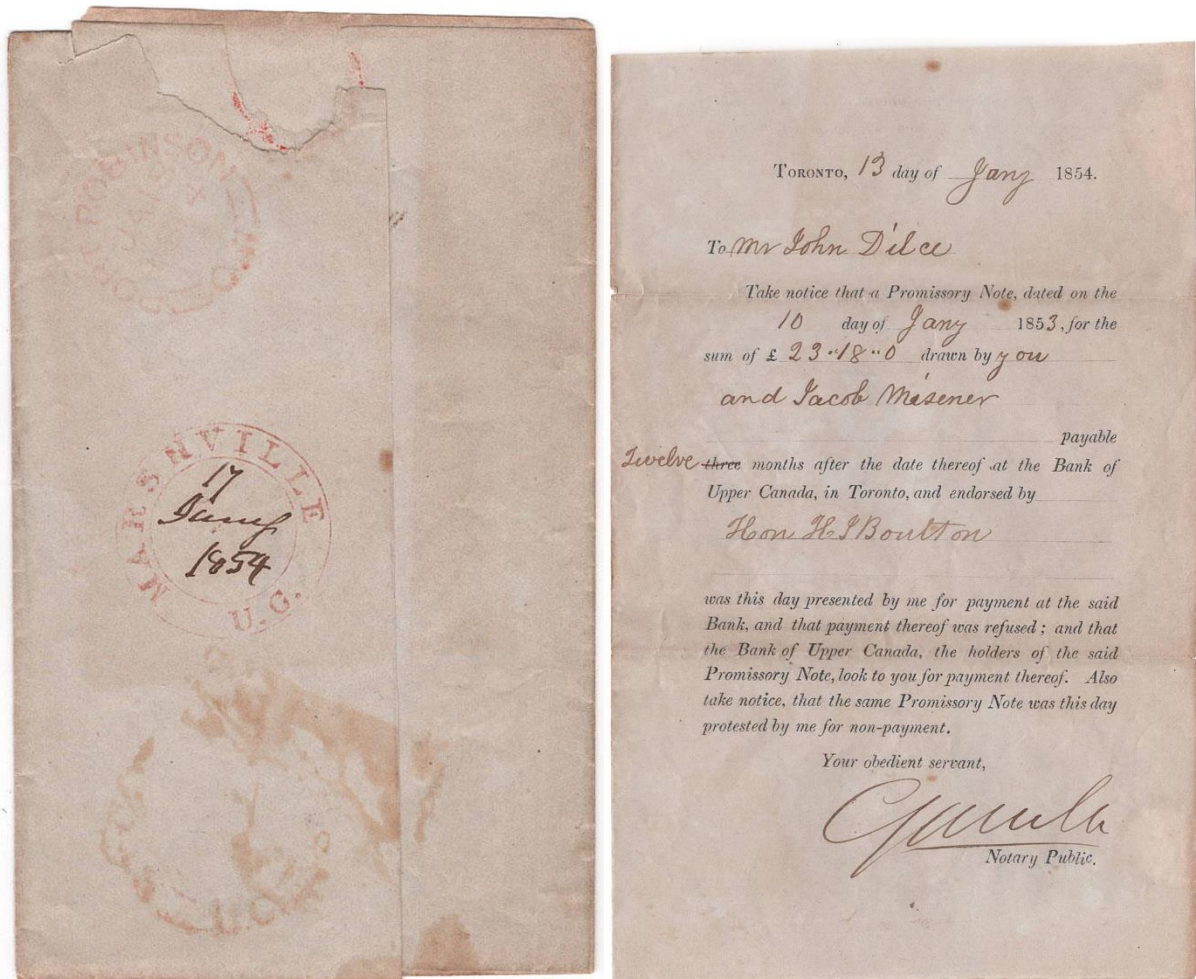 PORT ROBINSON
MARSHVILLE
17
Jany
1854
U.C.
TORONTO, 13 day of Jany 1854.
To Mr John Dilce
Take notice that a Promissory Note, dated on the
10 day of Jany 1853, for the
sum of £ 23 " 18 " 0 drawn by you
and Jacob Misener
payable
Twelve three months after the date thereof at the Bank of
Upper Canada, in Toronto, and endorsed by
Hon H J Boulton
was this day presented by me for payment at the said
Bank, and that payment thereof was refused; and that
the Bank of Upper Canada, the holders of the said
Promissory Note, look to you for payment thereof. Also
take notice, that the same Promissory Note was this day
protested by me for non-payment.
Your obedient servant,
Notary Public.